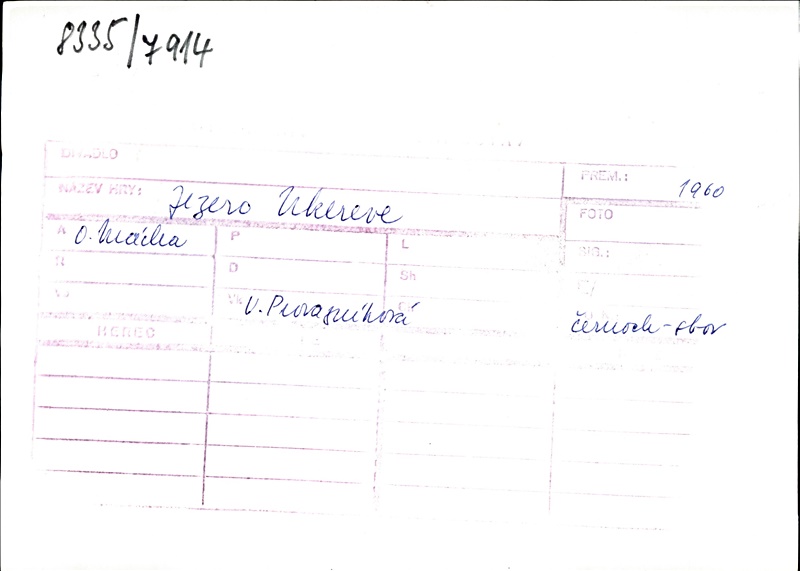 8335/7914
DIVADLO
PREM.: 1960
NÁZEV HRY: Jezero Ukereve
FOTO
A O. Mácha P L
SIG.:
R D Sh
Vk V. Provazníková
černoch-sbor
HEREC